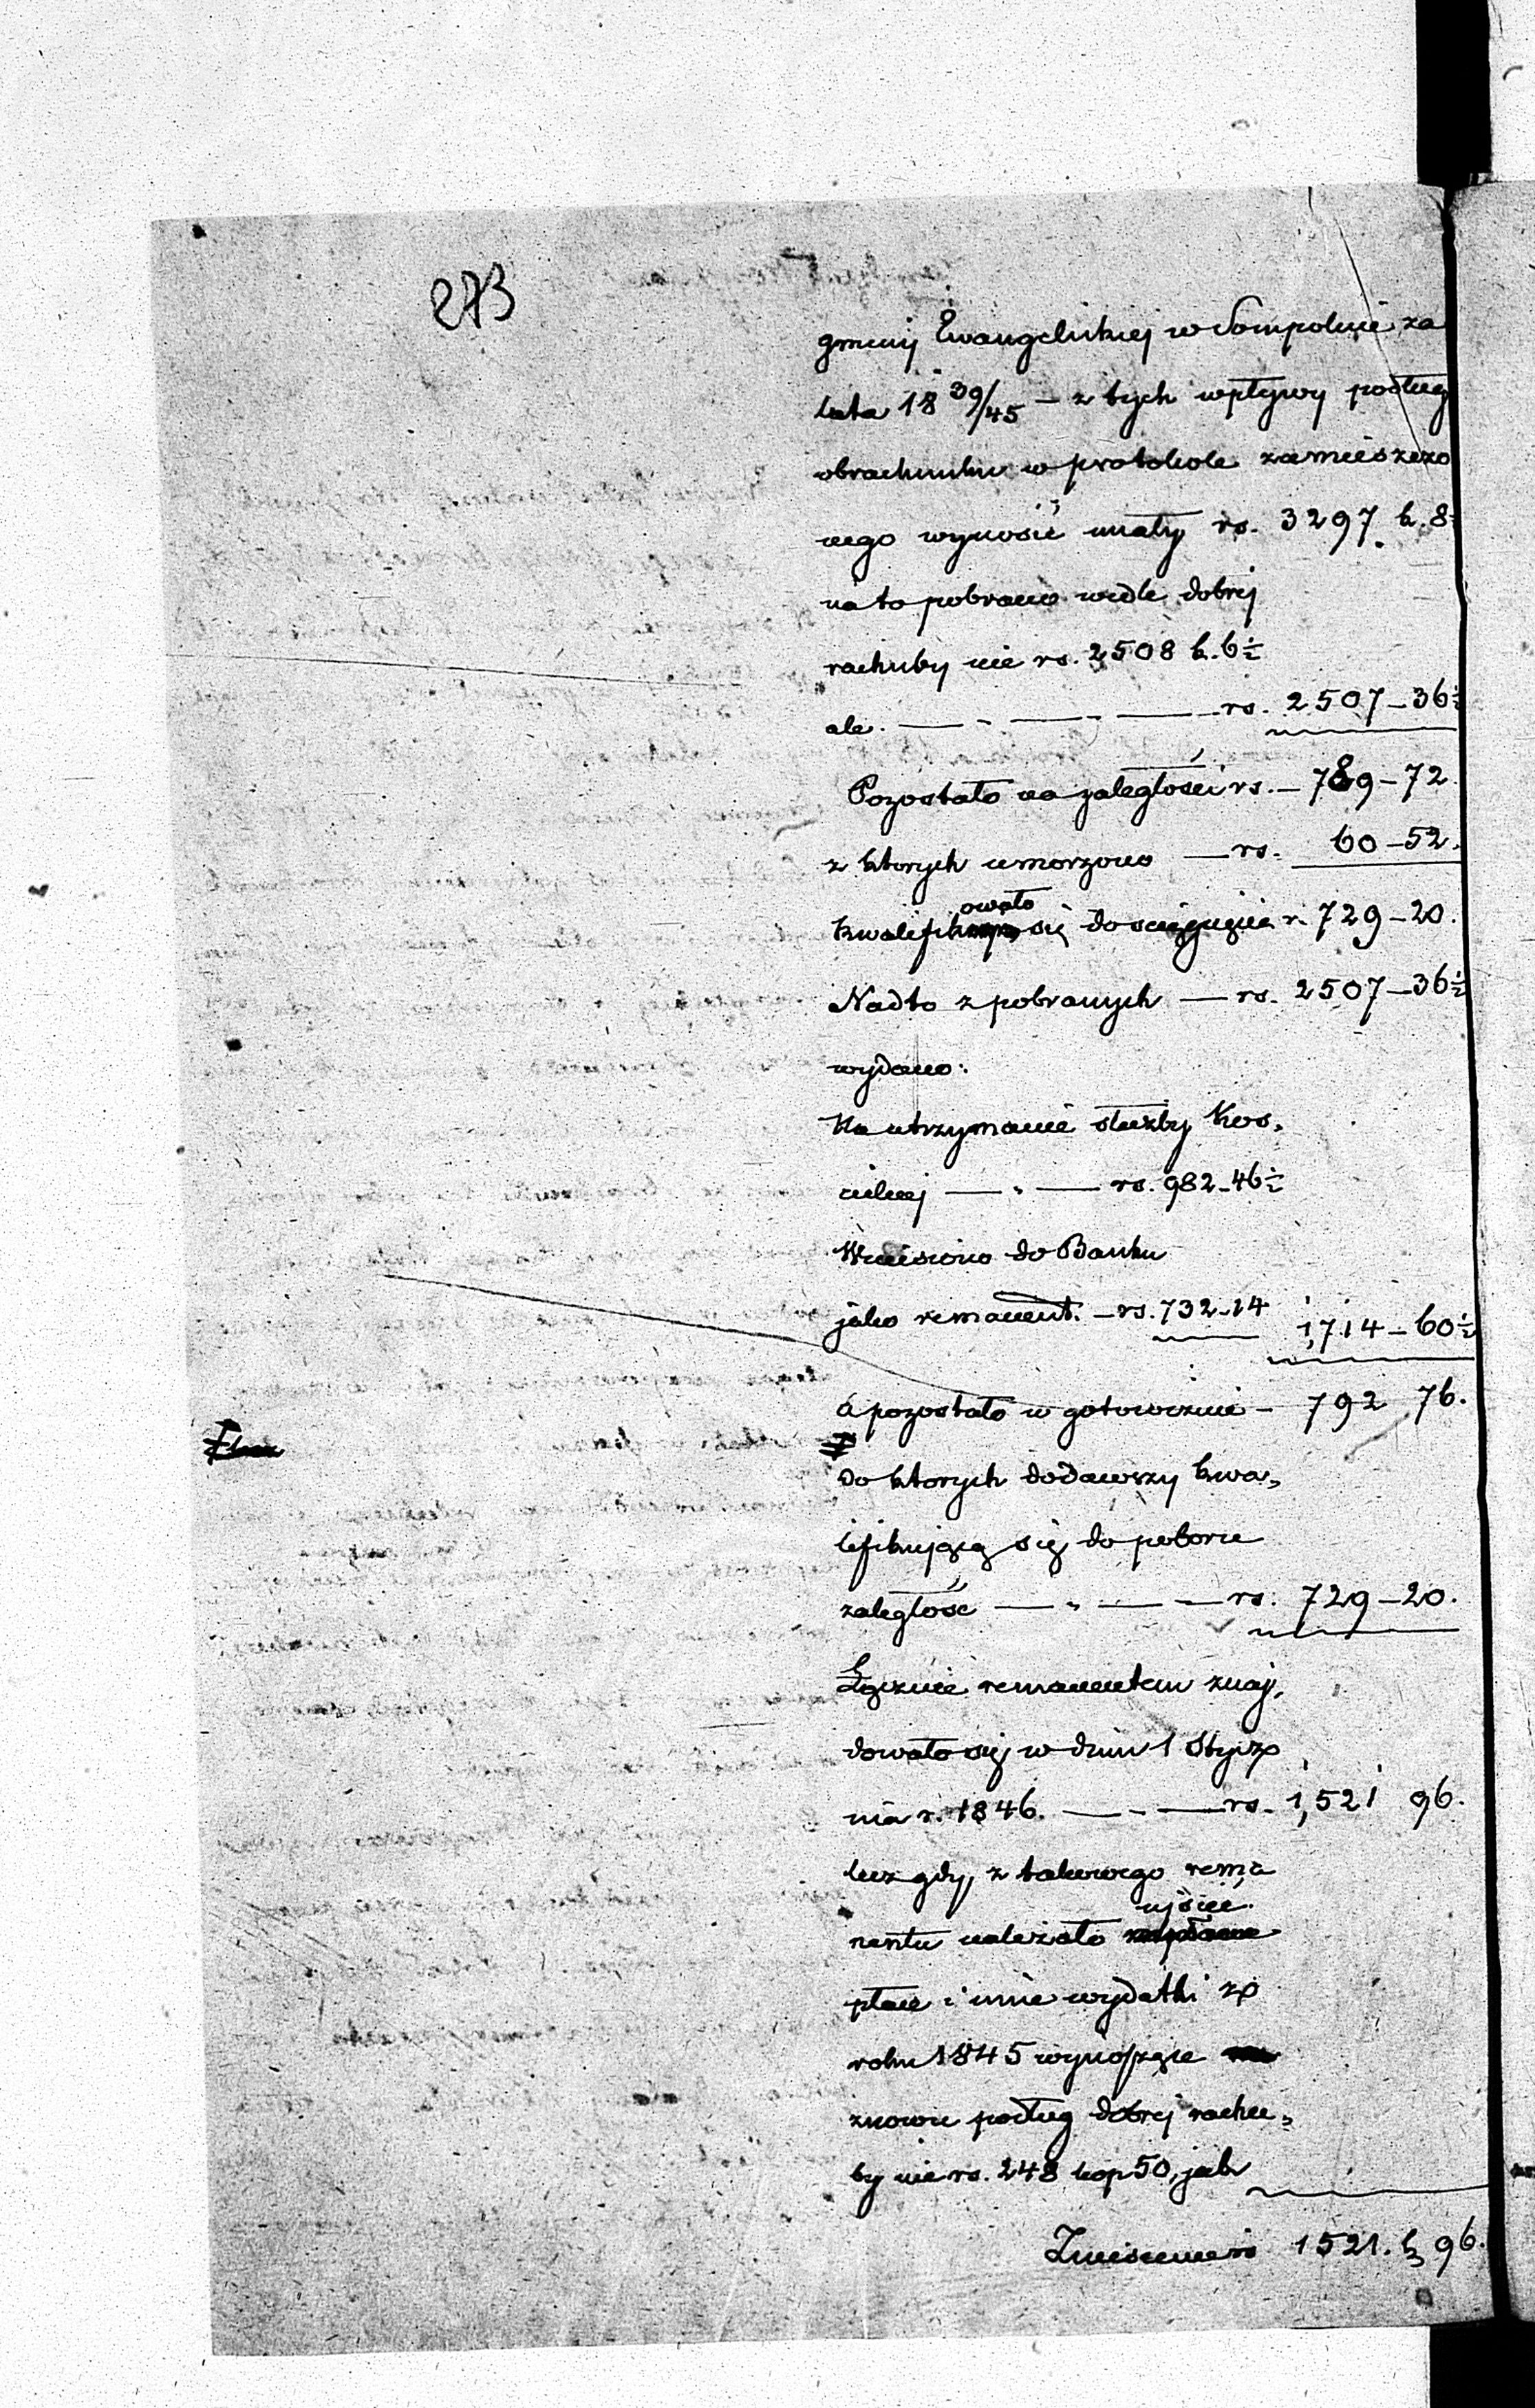 273
gminy Ewangelickiej w Sompolnie za
lata 18 39/45 — z tych wpływy podług
obrachunku w protokole zamieszczo
nego wynosić miały rs. 3297 k. 8½
na to pobrano wedle dobrej
rachuby nie rs. 2508 k. 6½
ale. — - — - — rs. 2507 — 36½
Pozostało na zaległości rs. — 789 — 72.
z ktorych umorzono — rs. 60 — 52.
kwalifikowało się do sciągnięcia r. 729 — 20.
Nadto z pobranych — rs. 2507 — 36½
wydano:
Na utrzymanie służby Kos„
cielnej — „ — rs. 982 — 46½
Wniesiono do Banku
jako remanent. — rs. 732 — 14 1,714 — 60½
a pozostało w gotowiznie — 792 76.
do ktorych dodawszy kwa„
lifikującą się do poboru
zaległość — „ — — rs. 729 — 20.
Łącznie remanentem znaj„
dowało się w dniu 1 Stycz
nia r. 1846. — - — rs. 1,521 96.
lecz gdy, z takowego rema
nentu należało ujścić
płace i inne wydatki z
roku 1845 wynoszące
znowu podług dobrej rachu„
by nie rs. 248 kop 50, jak
Zniesieniem 1521. k 96.